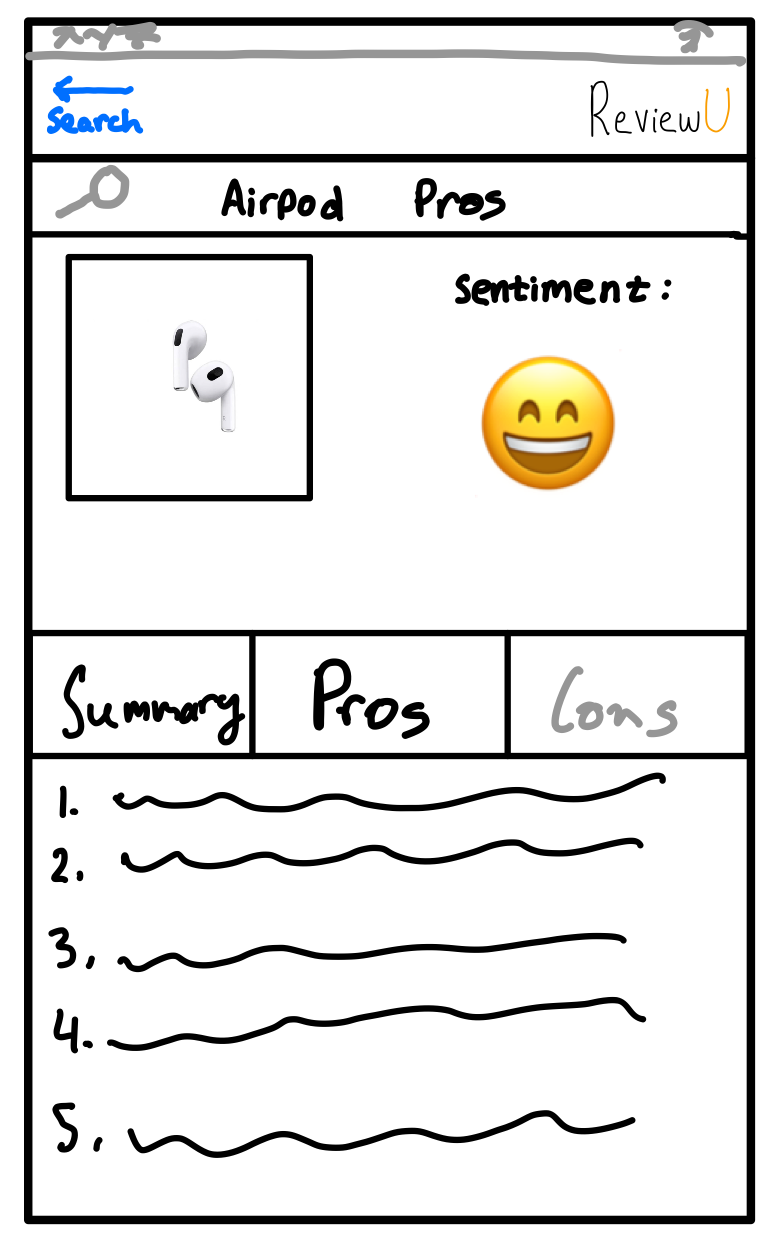 Search
ReviewU
Airpod Pros
sentiment:
Summary
Pros
Cons
1.
2.
3.
4.
5.